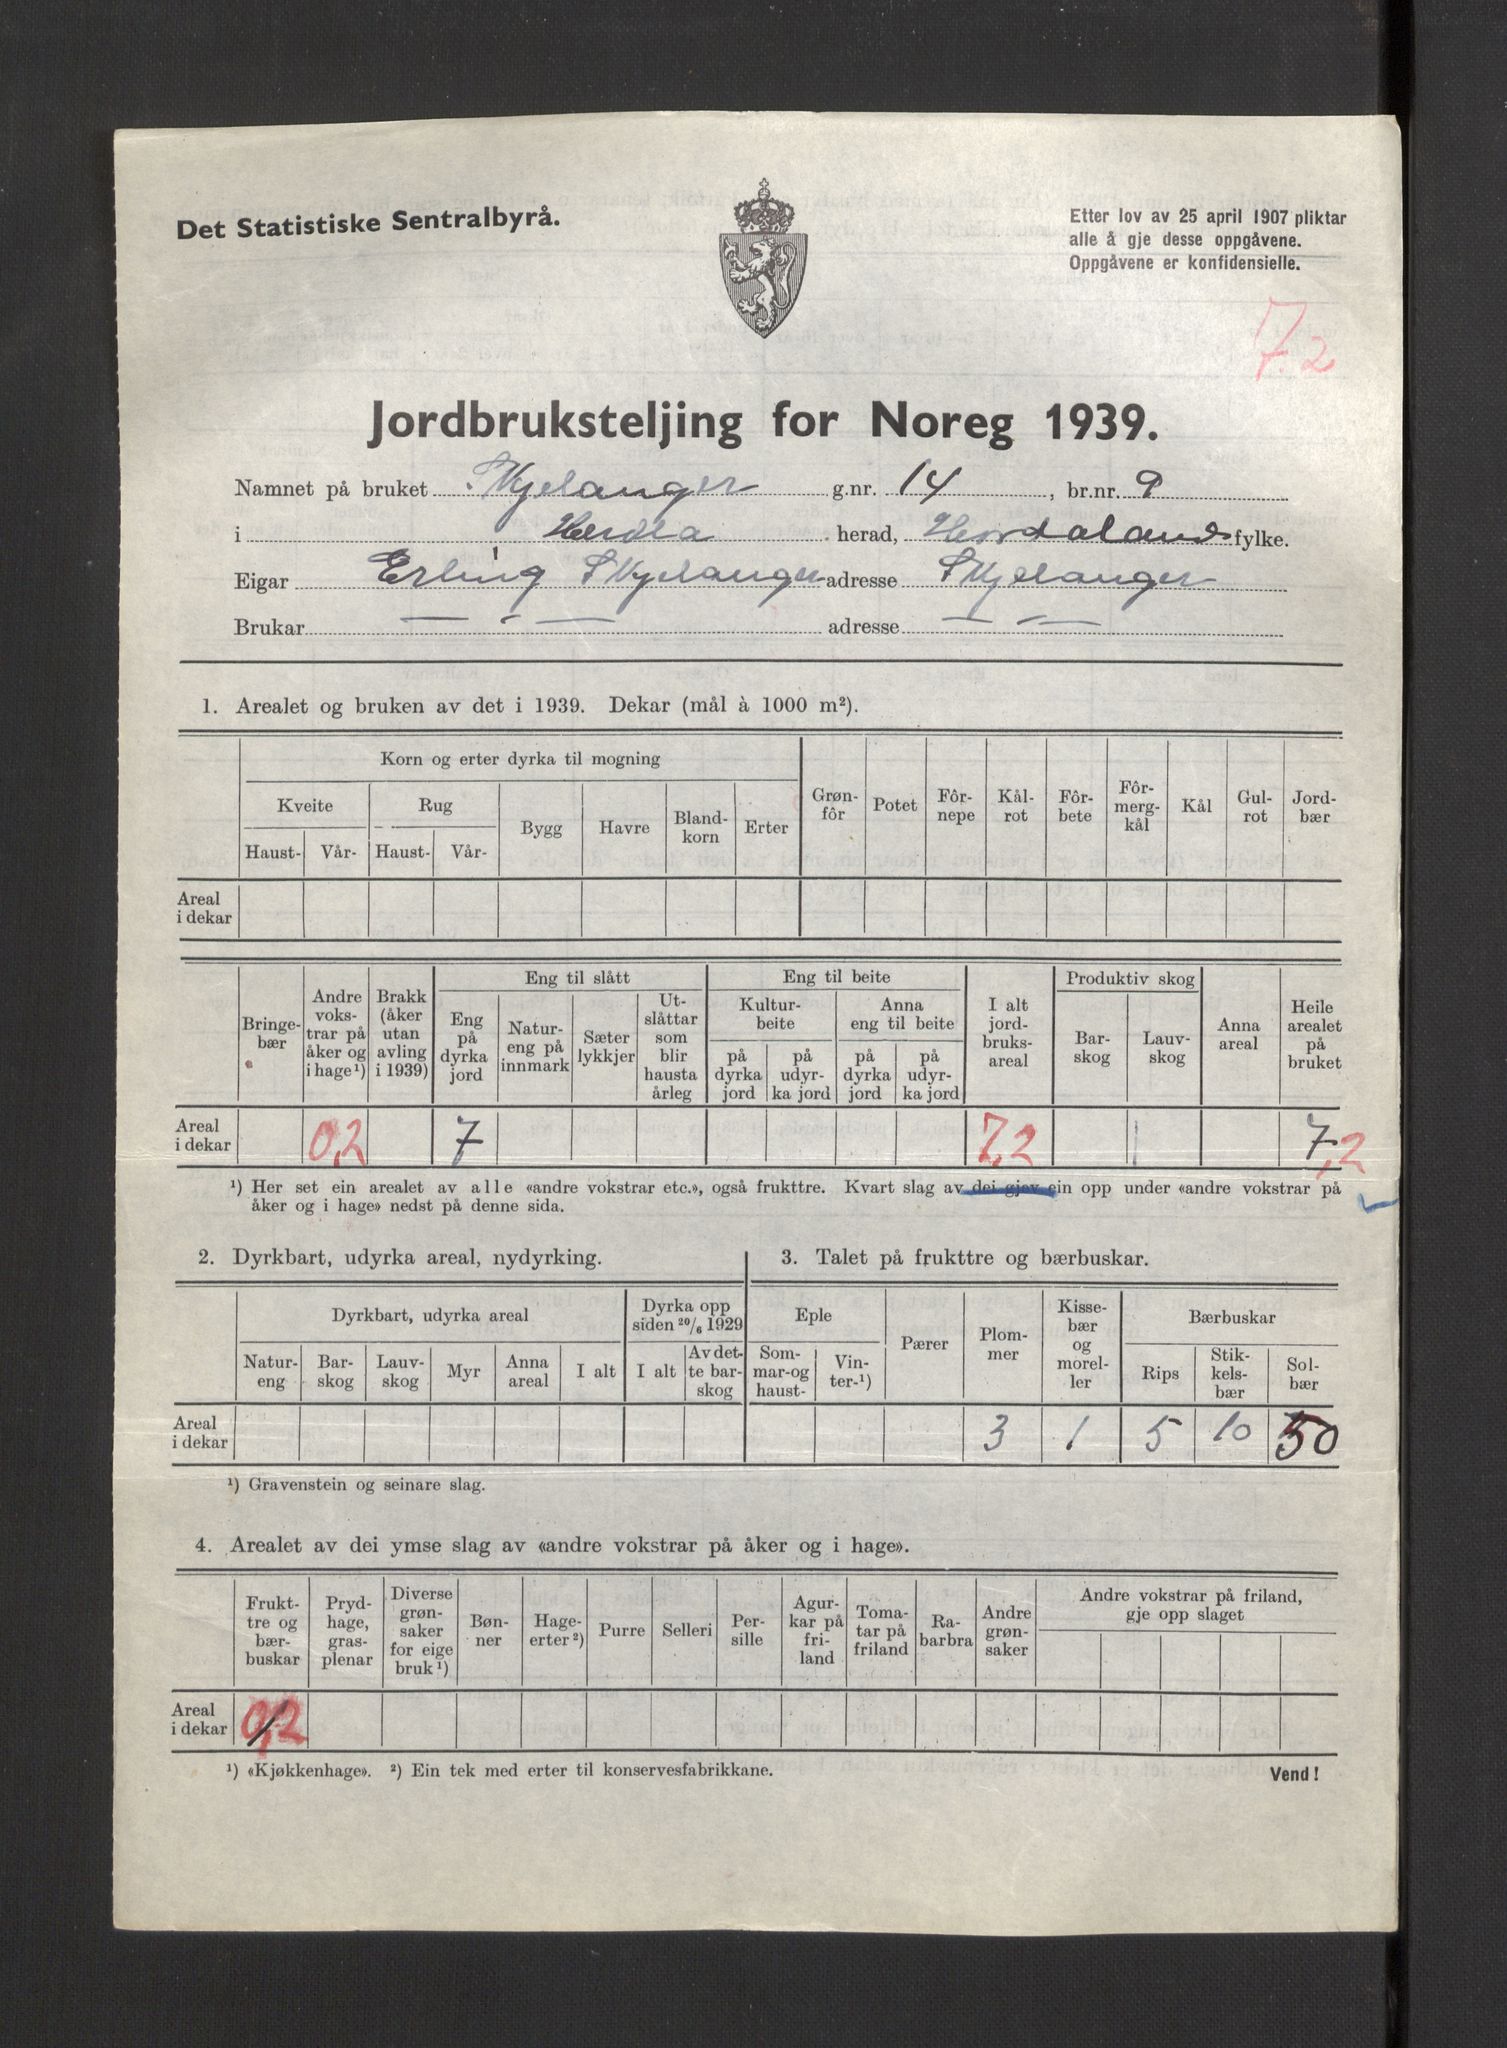 Det Statistiske Sentralbyrå.
Etter lov av 25 april 1907 pliktar
alle å gje desse oppgåvene.
Oppgåvene er konfidensielle.
7.2
Jordbruksteljing for Noreg 1939.
Namnet på bruket Skjelanger g.nr. 14, br.nr. 9
i Herdla herad, Hordaland fylke.
Eigar Erling Skjelanger adresse Skjelanger
Brukar — " — adresse — " —
1. Arealet og bruken av det i 1939. Dekar (mål à 1000 m²).
Korn og erter dyrka til mogning
Kveite Rug
Haust- Vår- Haust- Vår- Bygg Havre Bland-korn Erter Grøn-fôr Potet Fôr-nepe Kål-rot Fôr-bete Fôr-merg-kål Kål Gul-rot Jord-bær
Areal
i dekar
Eng til slått Eng til beite Produktiv skog
Kultur-beite Anna eng til beite
Bringe-bær Andre voks-trar på åker og i hage¹) Brakk (åker utan avling i 1939) Eng på dyrka jord Natur-eng på innmark Sæter lykkjer Ut-slåttar som blir hausta årleg på dyrka jord på udyr-ka jord på dyrka jord på udyr-ka jord I alt jord-bruks-areal Bar-skog Lauv-skog Anna areal Heile arealet på bruket
Areal
i dekar 0,2 7 7,2 7,2
¹) Her set ein arealet av alle «andre vokstrar etc.», også frukttre. Kvart slag av dei gjev ein opp under «andre vokstrar på
åker og i hage» nedst på denne sida.
2. Dyrkbart, udyrka areal, nydyrking.
Dyrkbart, udyrka areal Dyrka opp siden 20/6 1929
Natur-eng Bar-skog Lauv-skog Myr Anna areal I alt I alt Av det-te bar-skog
3. Talet på frukttre og bærbuskar.
Eple Pærer Plom-mer Kisse-bær og morel-ler Bærbuskar
Som-mar-og haust- Vin-ter-¹) Rips Stik-kels-bær Sol-bær
Areal
i dekar 3 1 5 10 50
¹) Gravenstein og seinare slag.
4. Arealet av dei ymse slag av «andre vokstrar på åker og i hage».
Frukt-tre og bær-buskar Pryd-hage, gras-plenar Diverse grøn-saker for eige bruk¹) Bøn-ner Hage-erter²) Purre Selleri Per-sille Agur-kar på fri-land Toma-tar på friland Ra-barbra Andre grøn-saker Andre vokstrar på friland, gje opp slaget
Areal
i dekar 0,2
¹) «Kjøkkenhage». ²) Ein tek med erter til konservesfabrikkane.
Vend!